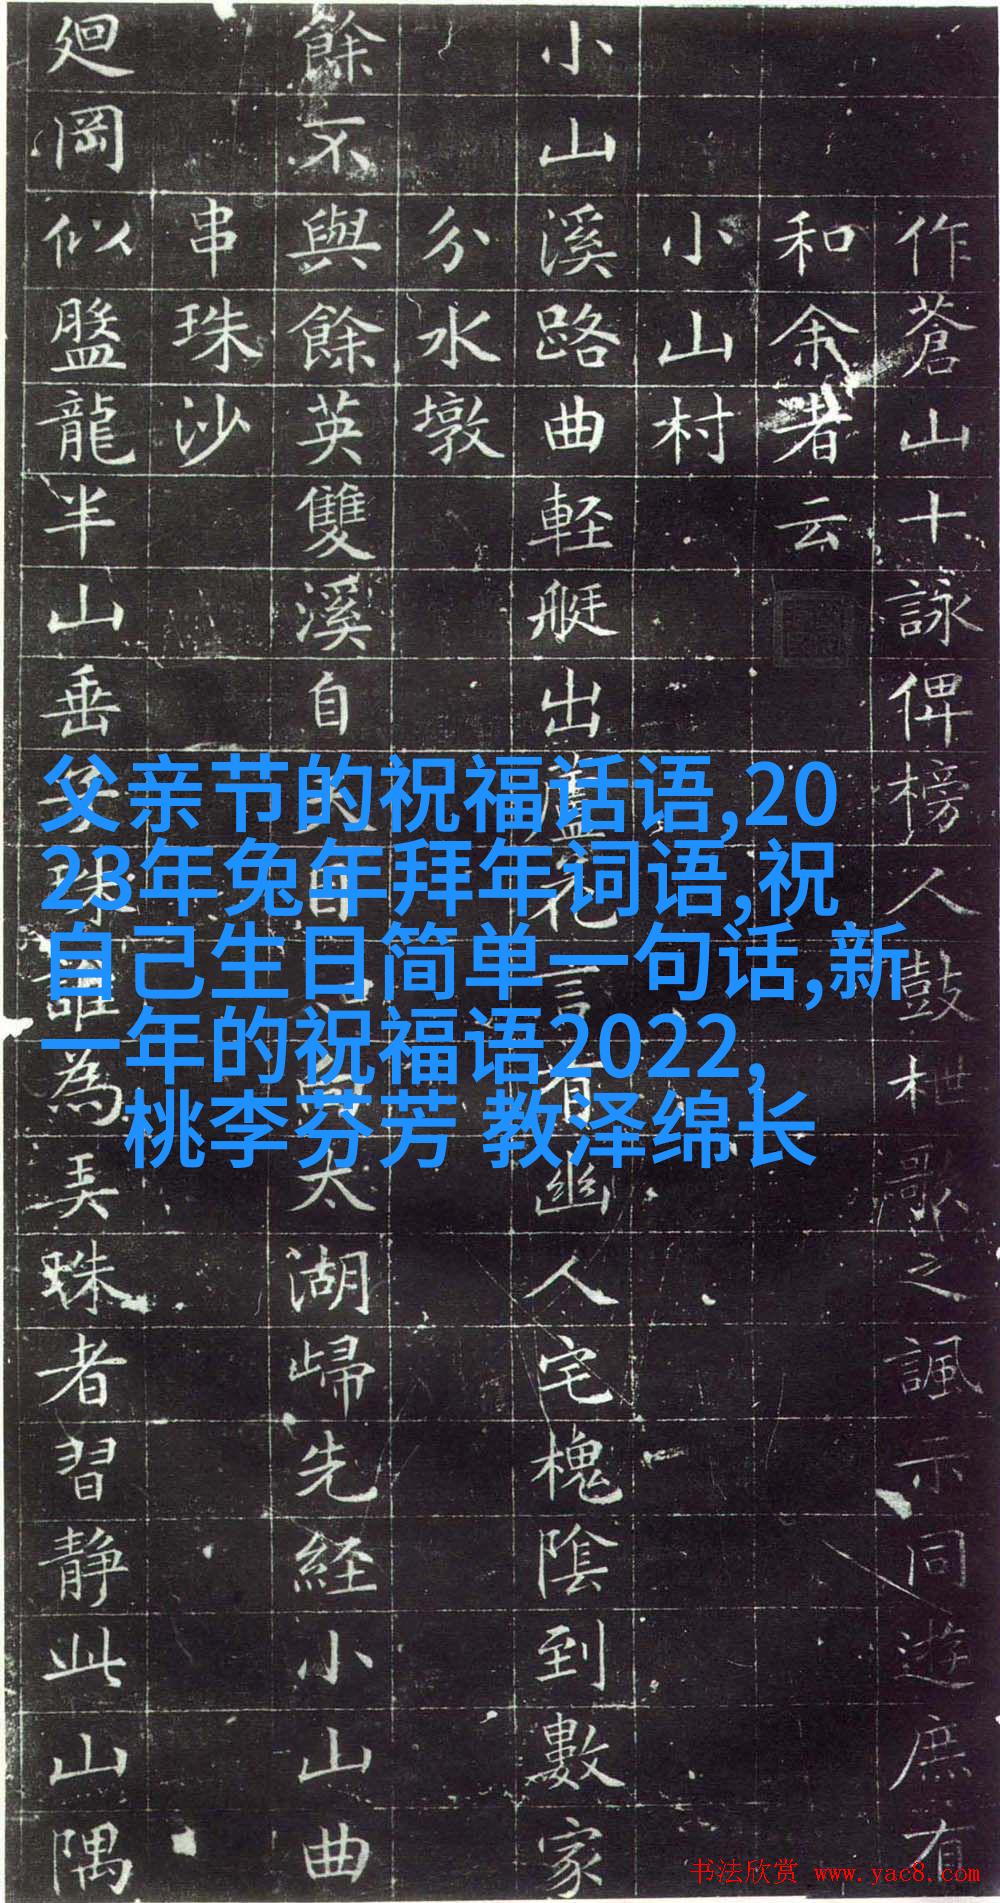 作蒼山十詠俾榜人鼓枻歌之諷示同遊庶有
和余者云
小山村
小山溪路曲軽艇出蘆花言有幽人宅槐陰到數家
分水墩
餘不與餘英雙溪自天目太湖歸先経小山曲
串珠沙
廻岡似盤龍半山垂子珠誰為弄珠者習静此山隅
父亲节的祝福话语,20
23年兔年拜年词语,祝
自己生日简单一句话,新
一年的祝福语2022,
桃李芬芳 教泽绵长
书法欣赏 www.yac8.com